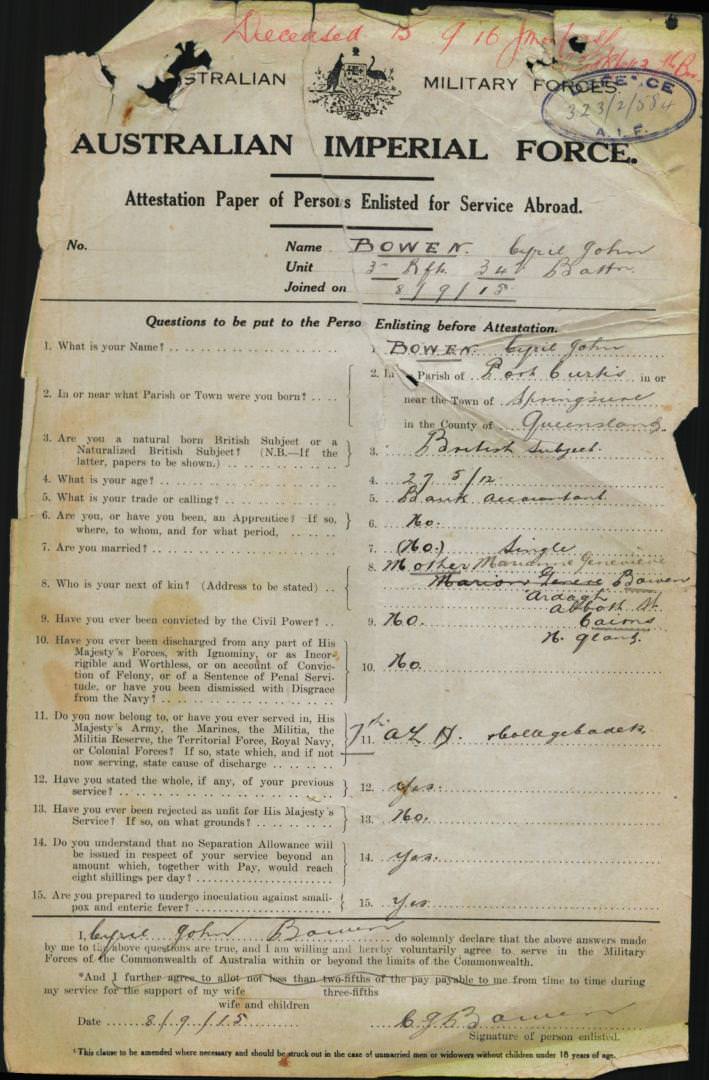 Deceased 15 9 16
AUSTRALIAN MILITARY FORCES.
DEFENCE
323/2/584
A.I.F.
AUSTRALIAN IMPERIAL FORCE.
Attestation Paper of Persons Enlisted for Service Abroad.
No. Name BOWEN. Cyril John
Unit 5 Rfts 34 Battn.
Joined on 8/9/15
Questions to be put to the Person Enlisting before Attestation.
1. What is your Name? 1 BOWEN Cyril John
2. In or near what Parish or Town were you born? 2. In Parish of Port Curtis in or
near the Town of Springsure
in the County of Queensland.
3. Are you a natural born British Subject or a
Naturalized British Subject? (N.B.—If the
latter, papers to be shown.) 3. British Subject.
4. What is your age? 4. 27 5/12
5. What is your trade or calling? 5. Bank Accountant
6. Are you, or have you been, an Apprentice? If so,
where, to whom, and for what period, 6. No.
7. Are you married? 7. (No.) Single
8. Who is your next of kin? (Address to be stated) 8. Mother Marianne Genevieve
Marion Bowen
Ardagh
Abbott St.
Cairns
N. Qland.
9. Have you ever been convicted by the Civil Power? 9. No.
10. Have you ever been discharged from any part of His
Majesty's Forces, with Ignominy, or as Incor-
rigible and Worthless, or on account of Convic-
tion of Felony, or of a Sentence of Penal Servi-
tude, or have you been dismissed with Disgrace
from the Navy? 10. No
11. Do you now belong to, or have you ever served in, His
Majesty's Army, the Marines, the Militia, the
Militia Reserve, the Territorial Force, Royal Navy,
or Colonial Forces? If so, state which, and if not
now serving, state cause of discharge 11. 7th A L H. College Cadets
12. Have you stated the whole, if any, of your previous
service? 12. Yes.
13. Have you ever been rejected as unfit for His Majesty's
Service? If so, on what grounds? 13. No.
14. Do you understand that no Separation Allowance will
be issued in respect of your service beyond an
amount which, together with Pay, would reach
eight shillings per day? 14. Yes.
15. Are you prepared to undergo inoculation against small-
pox and enteric fever? 15. Yes
I, Cyril John Bowen do solemnly declare that the above answers made
by me to the above questions are true, and I am willing and hereby voluntarily agree to serve in the Military
Forces of the Commonwealth of Australia within or beyond the limits of the Commonwealth.
*And I further agree to allot not less than two-fifths of the pay payable to me from time to time during
three-fifths
my service for the support of my wife
wife and children
Date 8/9/15 C.J. Bowen
Signature of person enlisted.
*This clause to be amended where necessary and should be struck out in the case of unmarried men or widowers without children under 18 years of age.